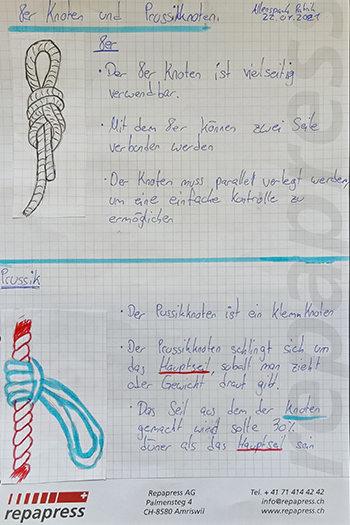 8er Knoten und Prussikknoten.
Allenspach Patrik
22.01.2021
8er
• Der 8er Knoten ist vielseitig
verwendbar.
• Mit dem 8er können zwei Seile
verbunden werden
• Der Knoten muss parallel verlegt werden,
um eine einfache Kontrolle zu
ermöglichen
Prussik
• Der Pussikknoten ist ein klemm Knoten
• Der Prussikknoten schlingt sich um
das Hauptseil, sobalt man zieht
oder Gewicht drauf gibt.
• Das Seil aus dem der Knoten
gemacht wird sollte 30%
düner als das Hauptseil sein
repapress
repapress
Repapress AG
Palmensteg 4
CH-8580 Amriswil
Tel. + 41 71 414 42 42
info@repapress.ch
www.repapress.ch